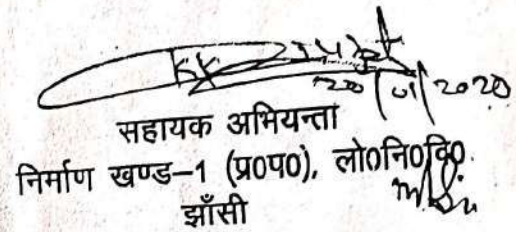 20/01/2020
सहायक अभियन्ता
निर्माण खण्ड-1 (प्र0प0), लो0नि0वि0
झाँसी